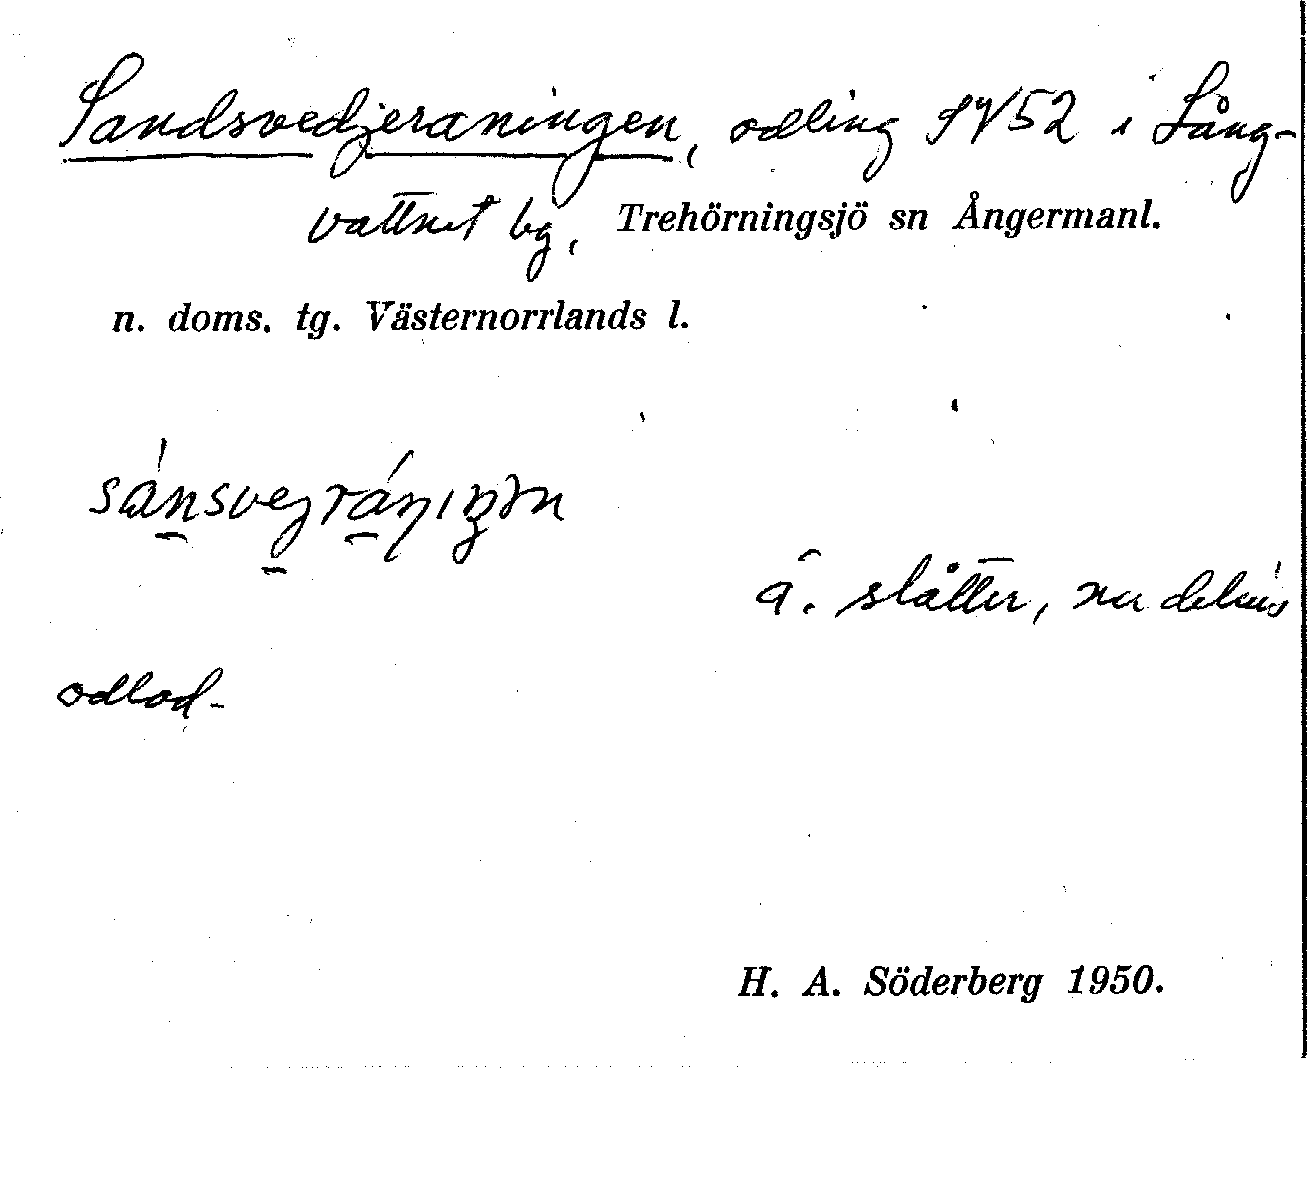 Sandsvedjeraningen, odling SV52 i Lång-
vattnet bg, Trehörningsjö sn Ångermanl.
n. doms. tg. Västernorrlands l.
ä. slåtter, nu delvis
odlad.
H. A. Söderberg 1950.